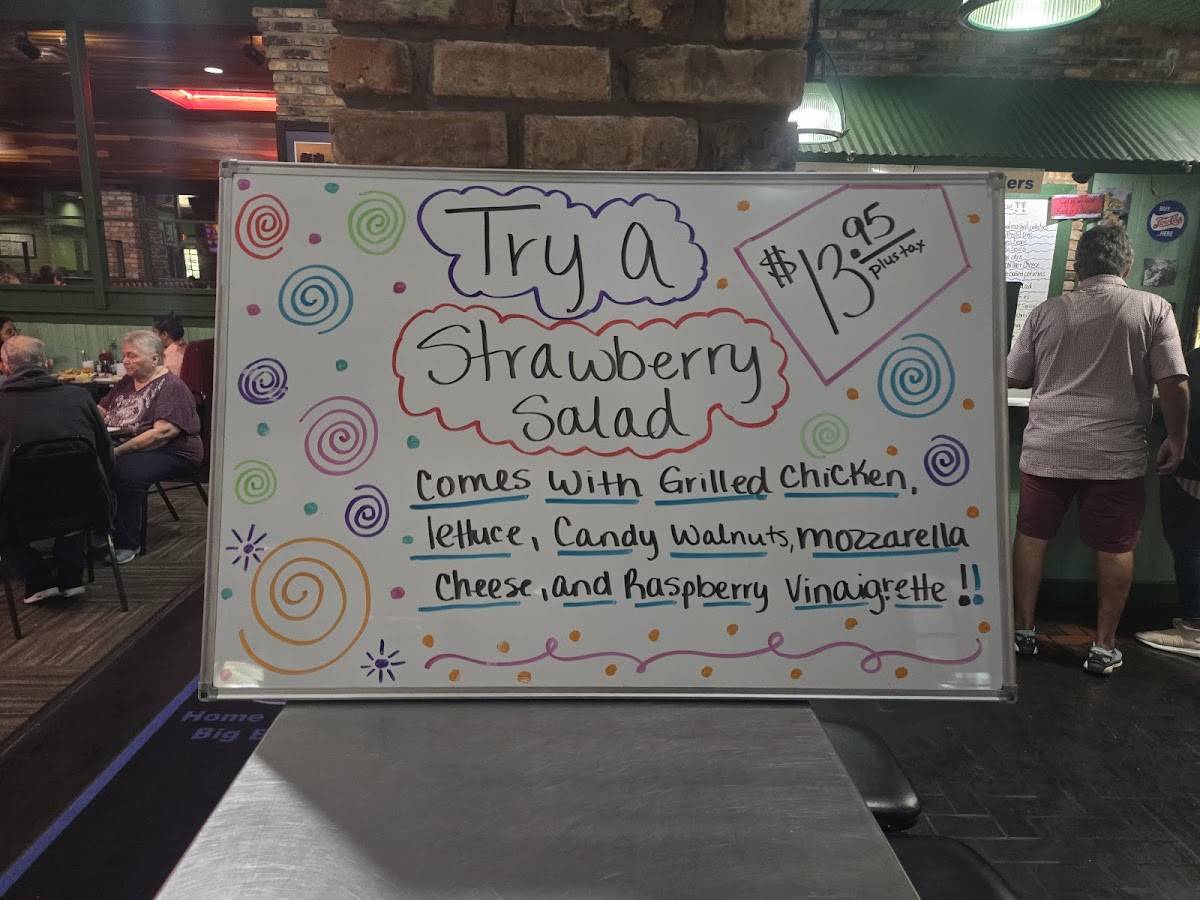 Try a
$13.95
plus tax
Strawberry
Salad
Comes With Grilled Chicken,
lettuce, Candy Walnuts, mozzarella
Cheese, and Raspberry Vinaigrette!!
ers
BUY
PEPSI
HERE
Home
Big